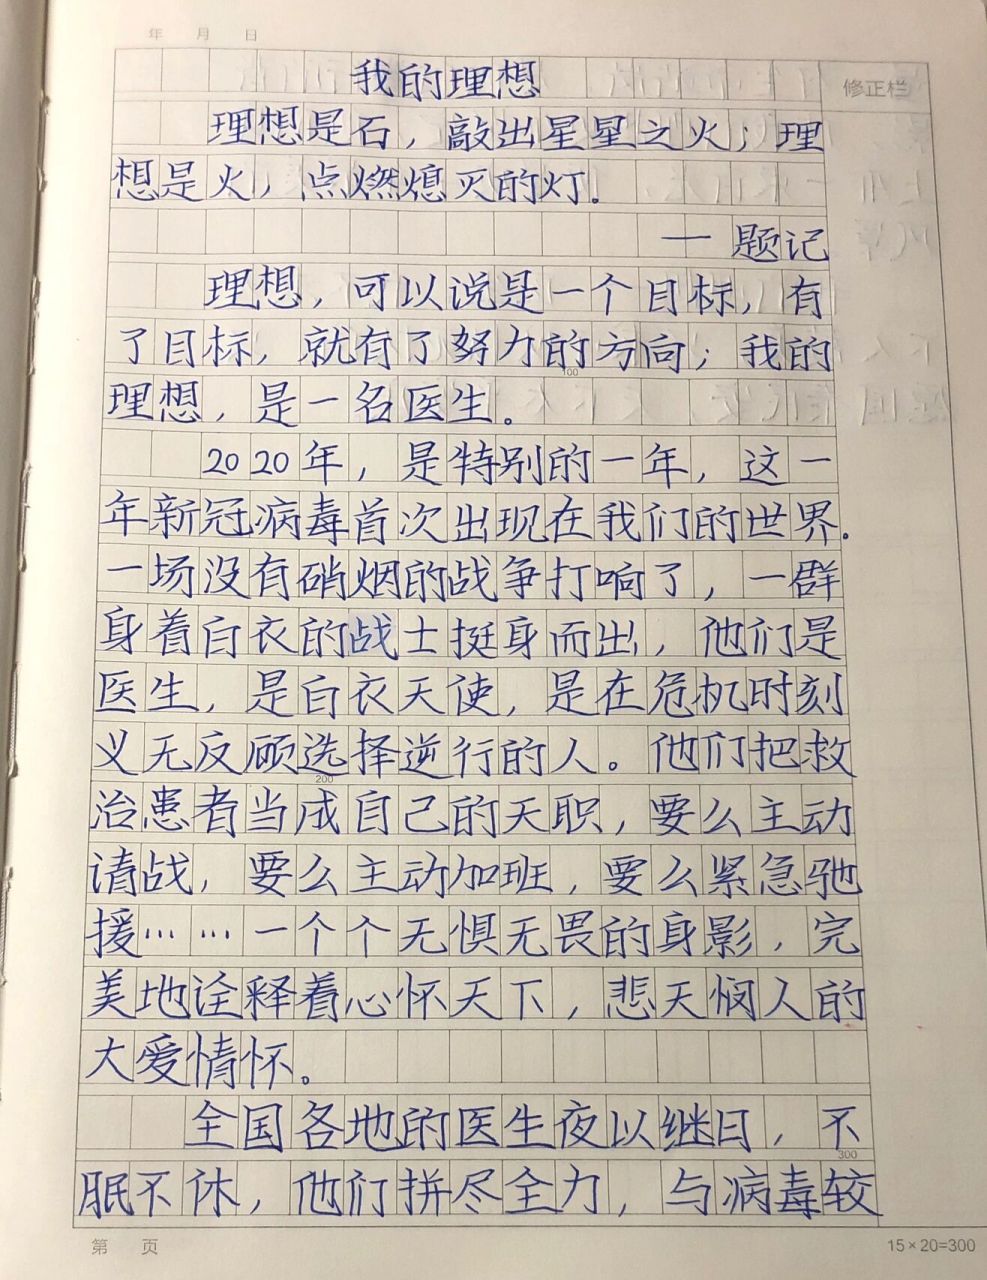 年 月 日
我的理想
修正栏
理想是石，敲出星星之火；理
想是火，点燃熄灭的灯。
— 题记
理想，可以说是一个目标，有
了目标，就有了努力的方向；我的
100
理想，是一名医生。
2020年，是特别的一年，这一
年新冠病毒首次出现在我们的世界.
一场没有硝烟的战争打响了，一群
身着白衣的战士挺身而出，他们是
医生，是白衣天使，是在危机时刻
义无反顾选择逆行的人。他们把救
200
治患者当成自己的天职，要么主动
请战，要么主动加班，要么紧急驰
援……一个个无惧无畏的身影，完
美地诠释着心怀天下，悲天悯人的
大爱情怀。
全国各地的医生夜以继日，不
300
眠不休，他们拼尽全力，与病毒较
第 页
15×20=300